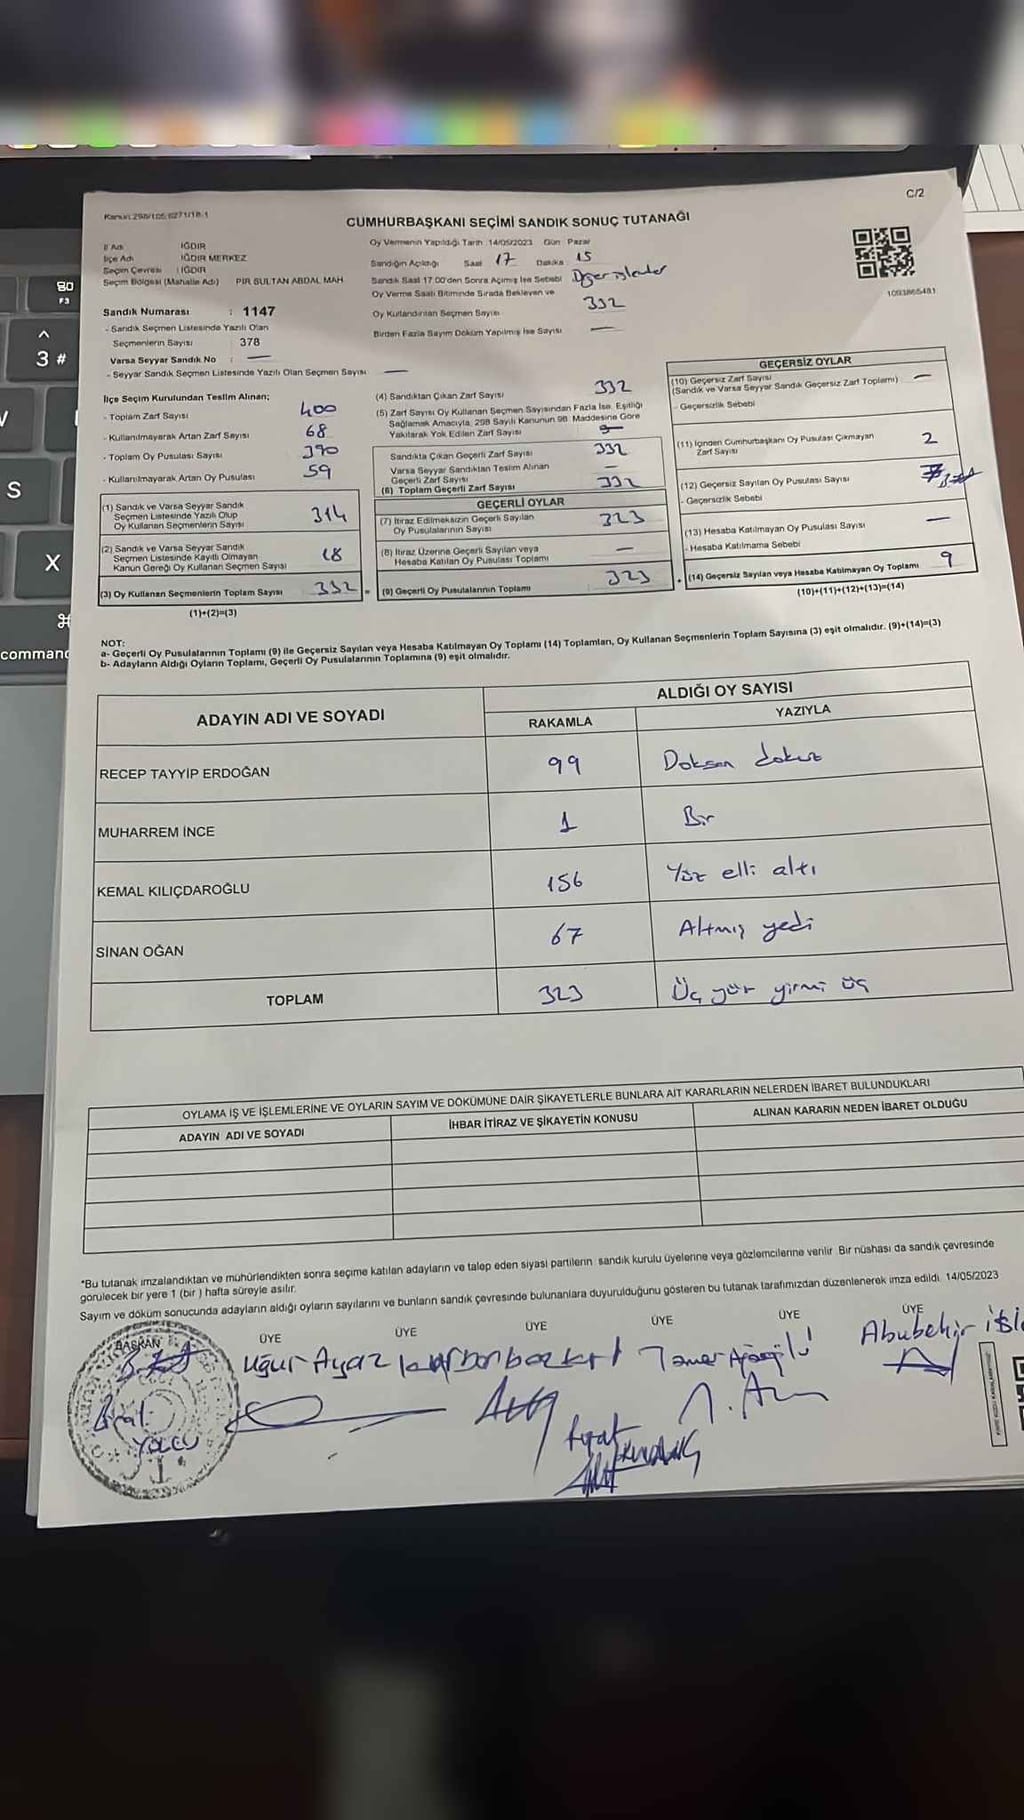 C/2
CUMHURBAŞKANI SEÇİMİ SANDIK SONUÇ TUTANAĞI
İl Adı IĞDIR
İlçe Adı IĞDIR MERKEZ
Seçim Çevresi : IĞDIR
Seçim Bölgesi (Mahalle Adı) PIR SULTAN ABDAL MAH
Sandık Numarası : 1147
- Sandık Seçmen Listesinde Yazılı Olan
Seçmenlerin Sayısı 378
Varsa Seyyar Sandık No : —
- Seyyar Sandık Seçmen Listesinde Yazılı Olan Seçmen Sayısı —
Oy Vermenin Yapıldığı Tarih 14/05/2023 Gün Pazar
Sandığın Açıldığı Saat 17 Dakika 15
Sandık Saat 17.00'den Sonra Açılmış İse Sebebi Diğer işlemler
Oy Verme Saati Bitiminde Sırada Bekleyen ve
Oy Kullandırılan Seçmen Sayısı 332
Birden Fazla Sayım Döküm Yapılmış İse Sayısı —
1093865481
İlçe Seçim Kurulundan Teslim Alınan;
- Toplam Zarf Sayısı 400
- Kullanılmayarak Artan Zarf Sayısı 68
- Toplam Oy Pusulası Sayısı 390
- Kullanılmayarak Artan Oy Pusulası 59
(1) Sandık ve Varsa Seyyar Sandık
Seçmen Listesinde Yazılı Olup
Oy Kullanan Seçmenlerin Sayısı 314
(2) Sandık ve Varsa Seyyar Sandık
Seçmen Listesinde Kayıtlı Olmayan
Kanun Gereği Oy Kullanan Seçmen Sayısı 18
(3) Oy Kullanan Seçmenlerin Toplam Sayısı 332
(1)+(2)=(3)
(4) Sandıktan Çıkan Zarf Sayısı 332
(5) Zarf Sayısı Oy Kullanan Seçmen Sayısından Fazla İse, Eşitliği
Sağlamak Amacıyla, 298 Sayılı Kanunun 98. Maddesine Göre
Yakılarak Yok Edilen Zarf Sayısı
Sandıkta Çıkan Geçerli Zarf Sayısı 332
Varsa Seyyar Sandıktan Teslim Alınan
Geçerli Zarf Sayısı —
(6) Toplam Geçerli Zarf Sayısı 332
GEÇERLİ OYLAR
(7) İtiraz Edilmeksizin Geçerli Sayılan
Oy Pusulalarının Sayısı 323
(8) İtiraz Üzerine Geçerli Sayılan veya
Hesaba Katılan Oy Pusulası Toplamı —
(9) Geçerli Oy Pusulalarının Toplamı 323
GEÇERSİZ OYLAR
(10) Geçersiz Zarf Sayısı
(Sandık ve Varsa Seyyar Sandık Geçersiz Zarf Toplamı) —
- Geçersizlik Sebebi
(11) İçinden Cumhurbaşkanı Oy Pusulası Çıkmayan
Zarf Sayısı 2
(12) Geçersiz Sayılan Oy Pusulası Sayısı 7
- Geçersizlik Sebebi
(13) Hesaba Katılmayan Oy Pusulası Sayısı —
- Hesaba Katılmama Sebebi
(14) Geçersiz Sayılan veya Hesaba Katılmayan Oy Toplamı 9
(10)+(11)+(12)+(13)=(14)
NOT:
a- Geçerli Oy Pusulalarının Toplamı (9) ile Geçersiz Sayılan veya Hesaba Katılmayan Oy Toplamı (14) Toplamları, Oy Kullanan Seçmenlerin Toplam Sayısına (3) eşit olmalıdır. (9)+(14)=(3)
b- Adayların Aldığı Oyların Toplamı, Geçerli Oy Pusulalarının Toplamına (9) eşit olmalıdır.
ADAYIN ADI VE SOYADI
ALDIĞI OY SAYISI
RAKAMLA YAZIYLA
RECEP TAYYİP ERDOĞAN 99 Doksan dokuz
MUHARREM İNCE 1 Bir
KEMAL KILIÇDAROĞLU 156 Yüz elli altı
SİNAN OĞAN 67 Altmış yedi
TOPLAM 323 Üç yüz yirmi üç
OYLAMA İŞ VE İŞLEMLERİNE VE OYLARIN SAYIM VE DÖKÜMÜNE DAİR ŞİKAYETLERLE BUNLARA AİT KARARLARIN NELERDEN İBARET BULUNDUKLARI
ADAYIN ADI VE SOYADI İHBAR İTİRAZ VE ŞİKAYETİN KONUSU ALINAN KARARIN NEDEN İBARET OLDUĞU
*Bu tutanak imzalandıktan ve mühürlendikten sonra seçime katılan adayların ve talep eden siyasi partilerin sandık kurulu üyelerine veya gözlemcilerine verilir. Bir nüshası da sandık çevresinde
görülecek bir yere 1 (bir) hafta süreyle asılır.
Sayım ve döküm sonucunda adayların aldığı oyların sayılarını ve bunların sandık çevresinde bulunanlara duyurulduğunu gösteren bu tutanak tarafımızdan düzenlenerek imza edildi. 14/05/2023
BAŞKAN ÜYE ÜYE ÜYE ÜYE ÜYE ÜYE
Uğur Ayaz
Abubekir
80
F3
3 #
S
X
command